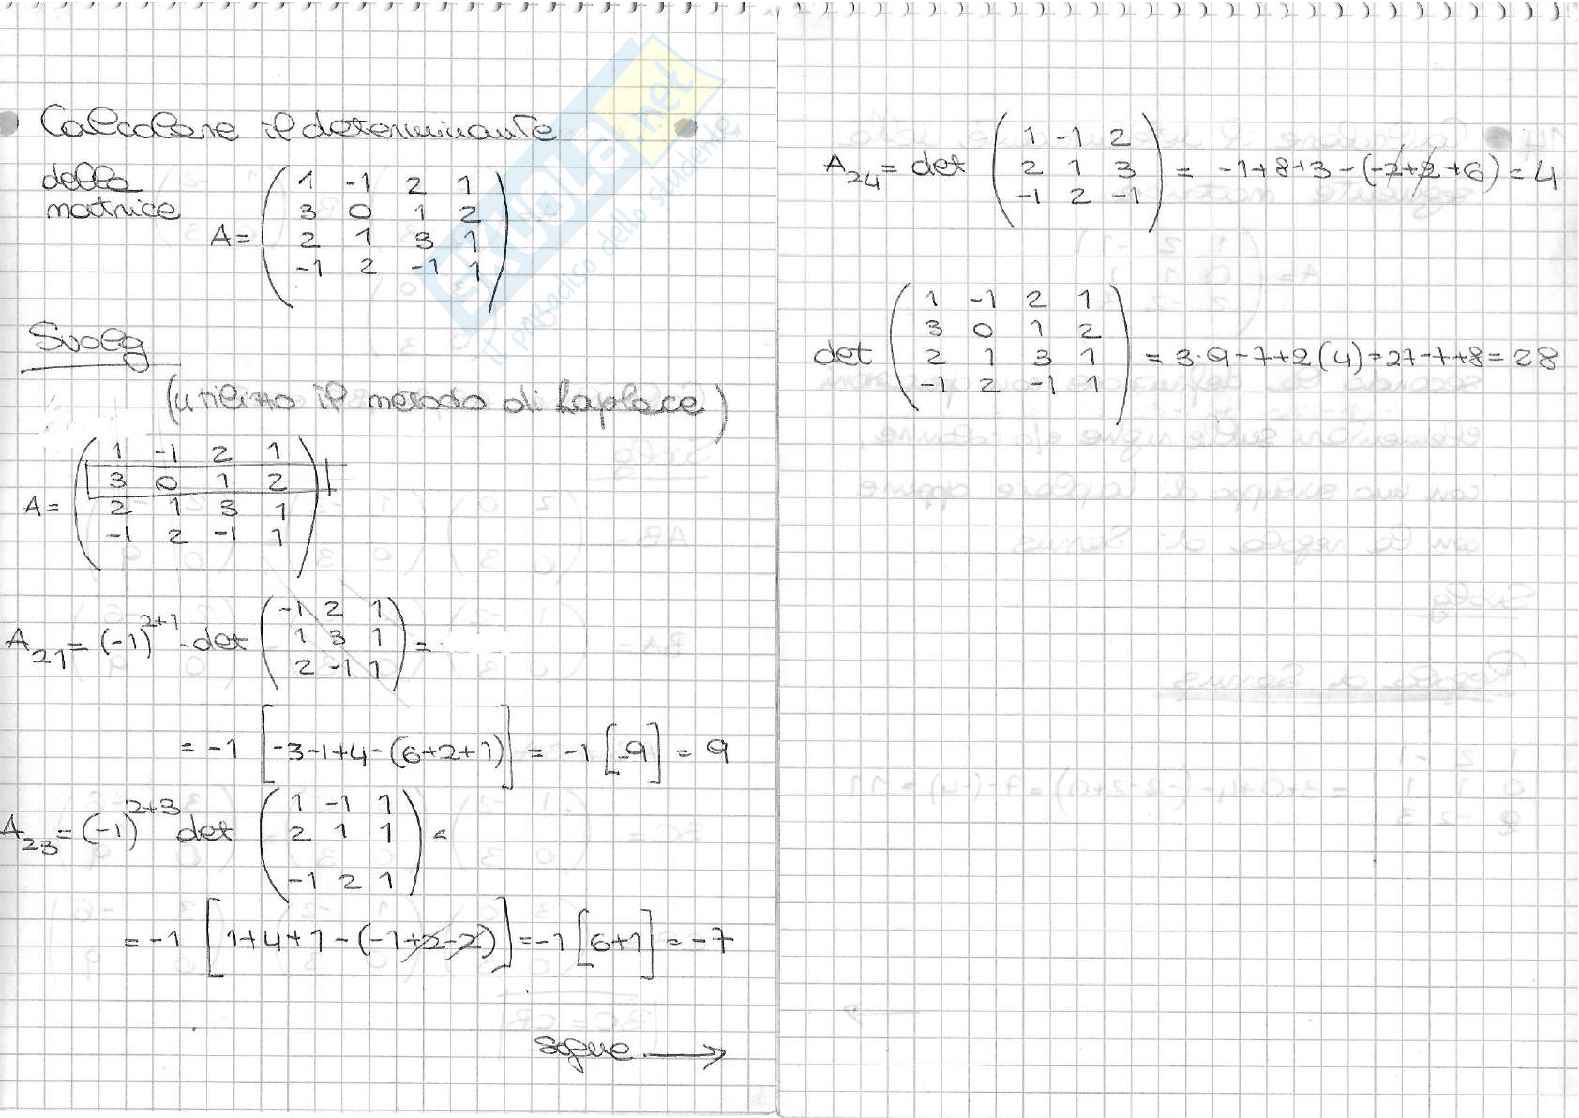 Calcolare il determinante
della
matrice
A = ( 1 -1 2 1
3 0 1 2
2 1 3 1
-1 2 -1 1 )
Svolg
(utilizzo il metodo di Laplace)
A = ( 1 -1 2 1
3 0 1 2
2 1 3 1
-1 2 -1 1 )
A₂₁ = (-1)²⁺¹ · det ( -1 2 1
1 3 1
2 -1 1 ) =
= -1 [ -3-1+4-(6+2+1) ] = -1 [-9] = 9
A₂₃ = (-1)²⁺³ det ( 1 -1 1
2 1 1
-1 2 1 ) =
= -1 [ 1+4+1-(-1+2-2) ] = -1 [6+1] = -7
segue →
A₂₄ = det ( 1 -1 2
2 1 3
-1 2 -1 ) = -1+8+3-(-2+2+6) = 4
det ( 1 -1 2 1
3 0 1 2
2 1 3 1
-1 2 -1 1 ) = 3·9-7+2(4)=27-7+8=28
SKUOLA.net
il paradiso dello studente